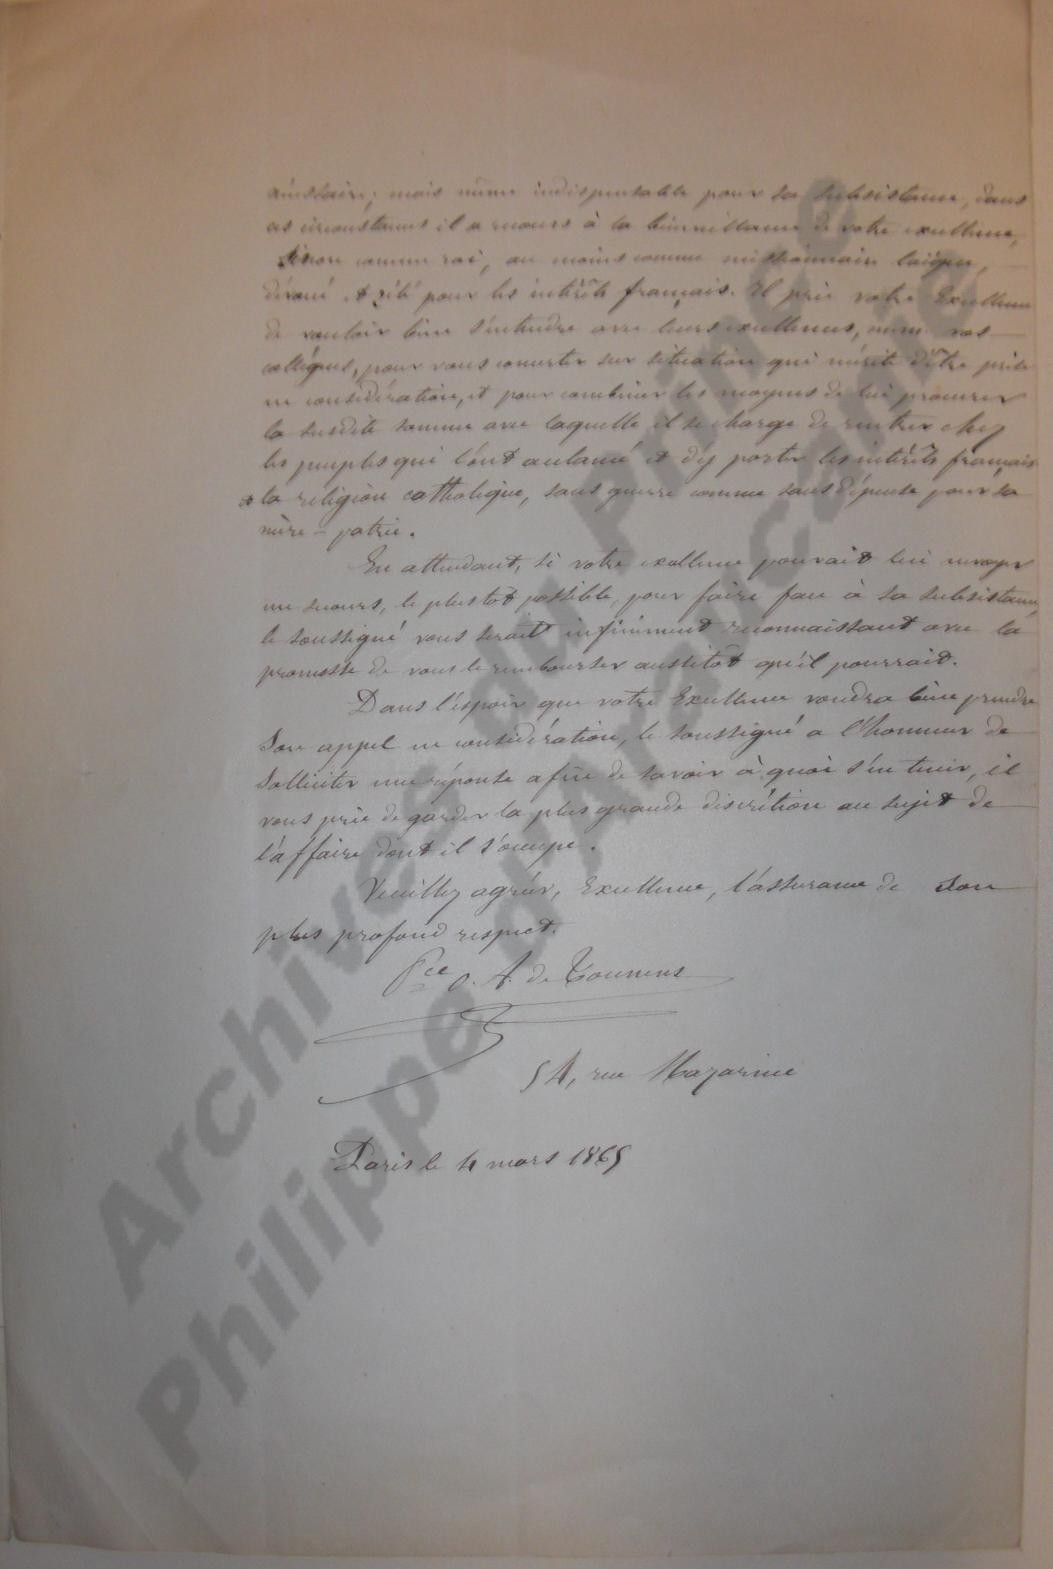 nécessaire; mais même indispensable pour sa subsistance, dans
ces circonstances il a recours à la bienveillance de votre excellence,
sinon comme roi, au moins comme missionnaire laïque,
dévoué et zélé pour les intérêts français. Il prie votre Excellence
de vouloir bien s'entendre avec leurs excellences, mm. vos
collègues, pour vous concerter sur situation qui mérite d'être prise
en considération, et pour combiner les moyens de lui procurer
la susdite somme avec laquelle il se charge de rentrer chez
les peuples qui l'ont acclamé et d'y porter les intérêts français
et la religion catholique, sans guerre comme sans dépense pour sa
mère-patrie.
En attendant, si votre excellence pouvait lui envoyer
un secours, le plus tôt possible, pour faire face à sa subsistance,
le soussigné vous serait infiniment reconnaissant avec la
promesse de vous le rembourser aussitôt qu'il pourrait.
Dans l'espoir que votre Excellence voudra bien prendre
son appel en considération, le soussigné a l'honneur de
solliciter une réponse afin de savoir à quoi s'en tenir, il
vous prie de garder la plus grande discrétion au sujet de
l'affaire dont il s'occupe.
Veuillez agréer, Excellence, l'assurance de son
plus profond respect.
Pce O. A. de Tounens
54, rue Mazarine
Paris le 4 mars 1865
Archives du Prince
Philippe d'Araucanie